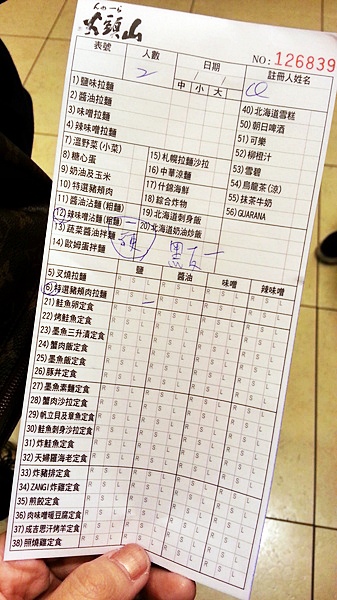 んのーら
火頭山
NO: 126839
表號 人數 日期 註冊人姓名
2 / /
中 小 大
1) 鹽味拉麵
2) 醬油拉麵
3) 味噌拉麵
4) 辣味噌拉麵
7) 溫野菜 (小菜)
8) 糖心蛋
9) 奶油及玉米
10) 特選豬頰肉
11) 醬油沾麵 (粗麵)
12) 辣味噌沾麵 (粗麵)
13) 蔬菜醬油拌麵
14) 歐姆蛋拌麵
15) 札幌拉麵沙拉
16) 中華涼麵
17) 什錦海鮮
18) 綜合炸物
19) 北海道刺身飯
20) 北海道奶油炒飯
40) 北海道雪糕
50) 朝日啤酒
51) 可樂
52) 柳橙汁
53) 雪碧
54) 烏龍茶 (涼)
55) 抹茶牛奶
56) GUARANA
一
硬
鹽 醬油 味噌 辣味噌
R S L
5) 叉燒拉麵
6) 辣選豬頰肉拉麵
21) 鮭魚卵定食
22) 烤鮭魚定食
23) 墨魚三升漬定食
24) 蟹肉飯定食
25) 墨魚飯定食
26) 豚丼定食
27) 墨魚素麵定食
28) 蟹肉沙拉定食
29) 帆立貝及章魚定食
30) 鮭魚刺身沙拉定食
31) 炸鮭魚定食
32) 天婦羅海老定食
33) 炸豬排定食
34) ZANGI炸雞定食
35) 煎餃定食
36) 肉味噌暖豆腐定食
37) 成吉思汗烤羊定食
38) 照燒雞定食